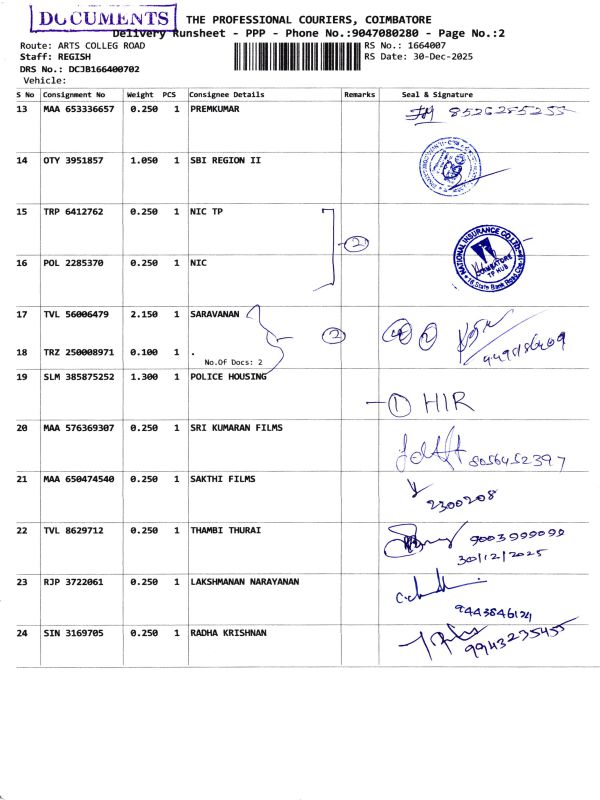 DOCUMENTS
THE PROFESSIONAL COURIERS, COIMBATORE
Delivery Runsheet - PPP - Phone No.:9047080280 - Page No.:2
Route: ARTS COLLEG ROAD
RS No.: 1664007
Staff: REGISH
RS Date: 30-Dec-2025
DRS No.: DCJB166400702
Vehicle:
S No Consignment No Weight PCS Consignee Details Remarks Seal & Signature
13 MAA 653336657 0.250 1 PREMKUMAR 8526285255
14 OTY 3951857 1.050 1 SBI REGION II
15 TRP 6412762 0.250 1 NIC TP
2
NATIONAL INSURANCE CO.LTD
COIMBATORE
TP HUB
16 POL 2285370 0.250 1 NIC
17 TVL 56006479 2.150 1 SARAVANAN
2 2
18 TRZ 250008971 0.100 1 .
No.Of Docs: 2
19 SLM 385875252 1.300 1 POLICE HOUSING
1 HIR
20 MAA 576369307 0.250 1 SRI KUMARAN FILMS
8056452397
21 MAA 650474540 0.250 1 SAKTHI FILMS
2300208
22 TVL 8629712 0.250 1 THAMBI THURAI
9003999099
30/12/2025
23 RJP 3722061 0.250 1 LAKSHMANAN NARAYANAN
9443846124
24 SIN 3169705 0.250 1 RADHA KRISHNAN
9943235455